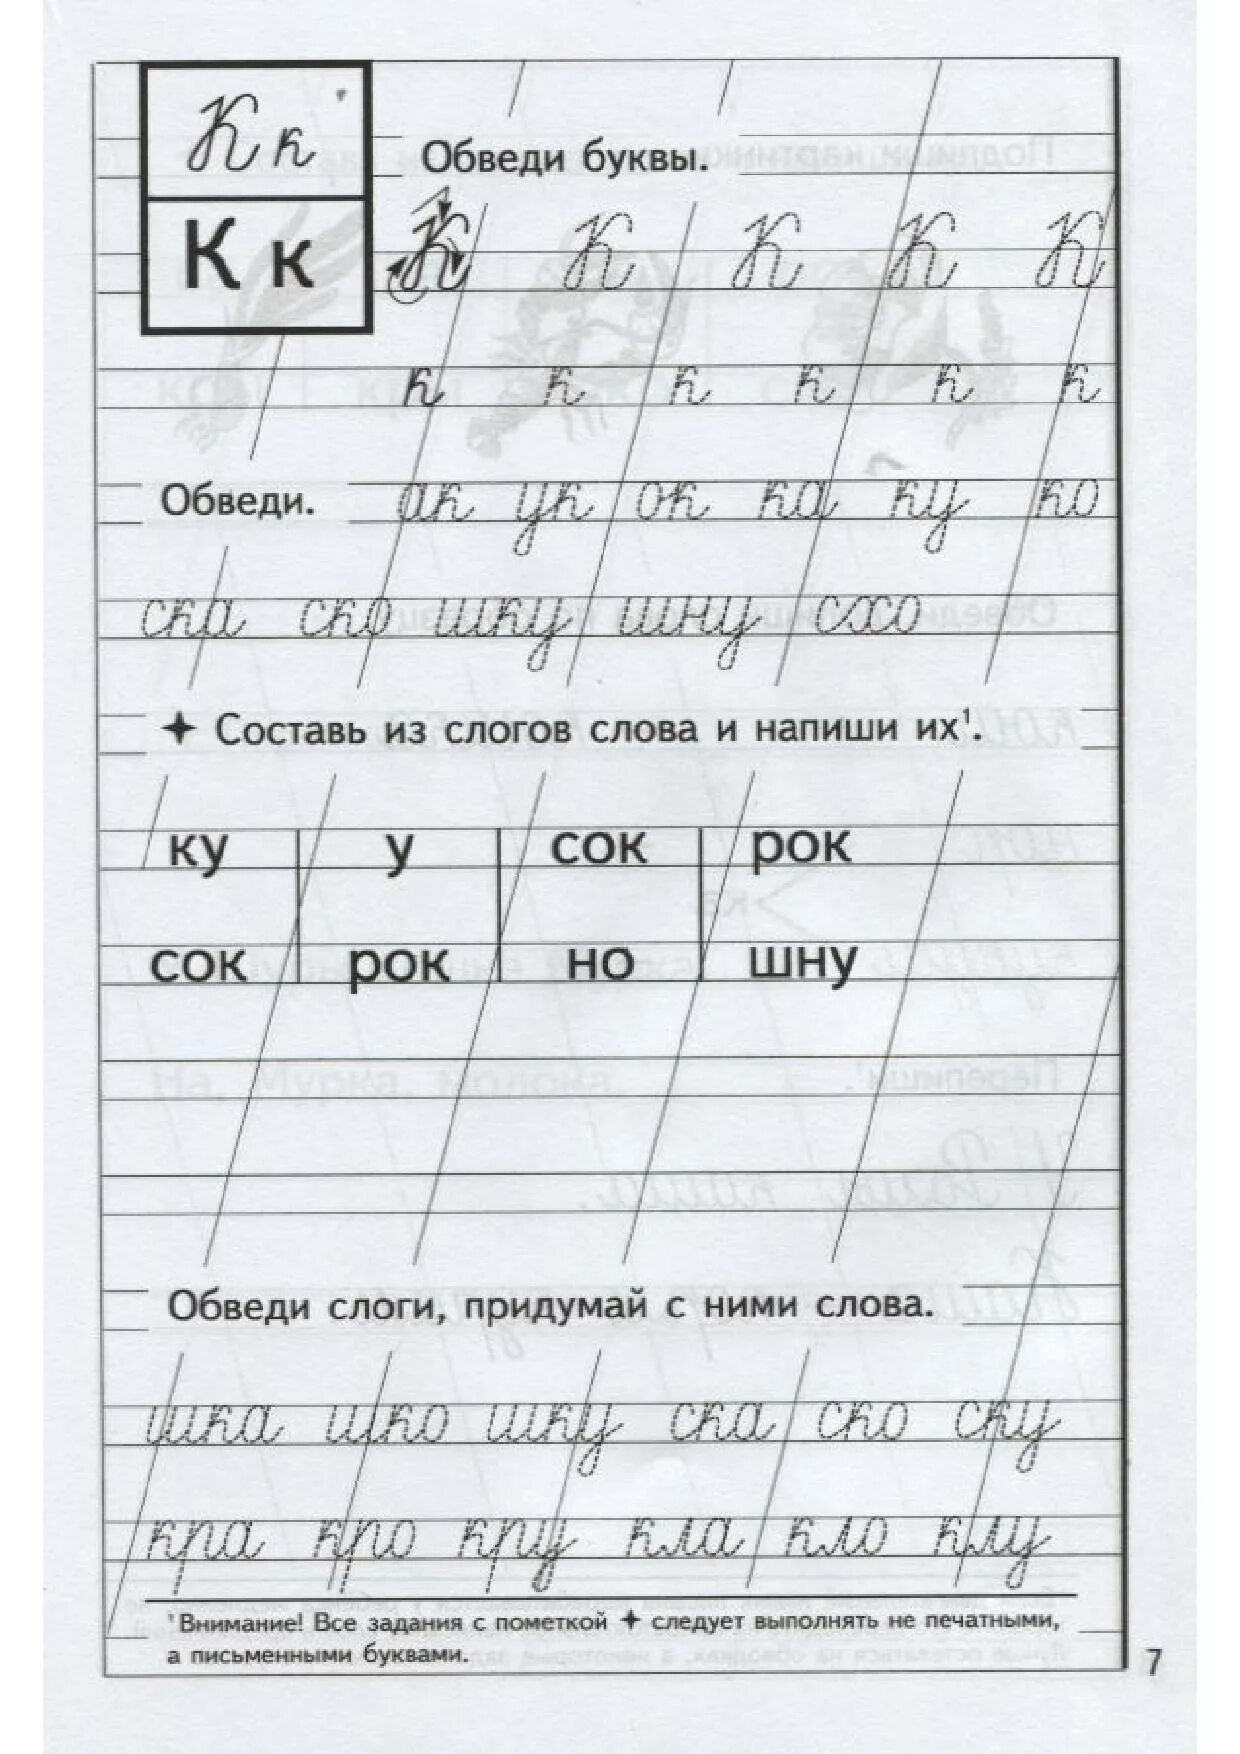 К к
Обведи буквы.
К к
К К К К К
к к к к к к
Обведи. ак ук ок ка ку ко
ска ско шку шну схо
✦ Составь из слогов слова и напиши их¹.
ку у сок рок
сок рок но шну
Обведи слоги, придумай с ними слова.
шка шко шку ска ско ску
кра кро кру кла кло клу
¹Внимание! Все задания с пометкой ✦ следует выполнять не печатными,
а письменными буквами.
7